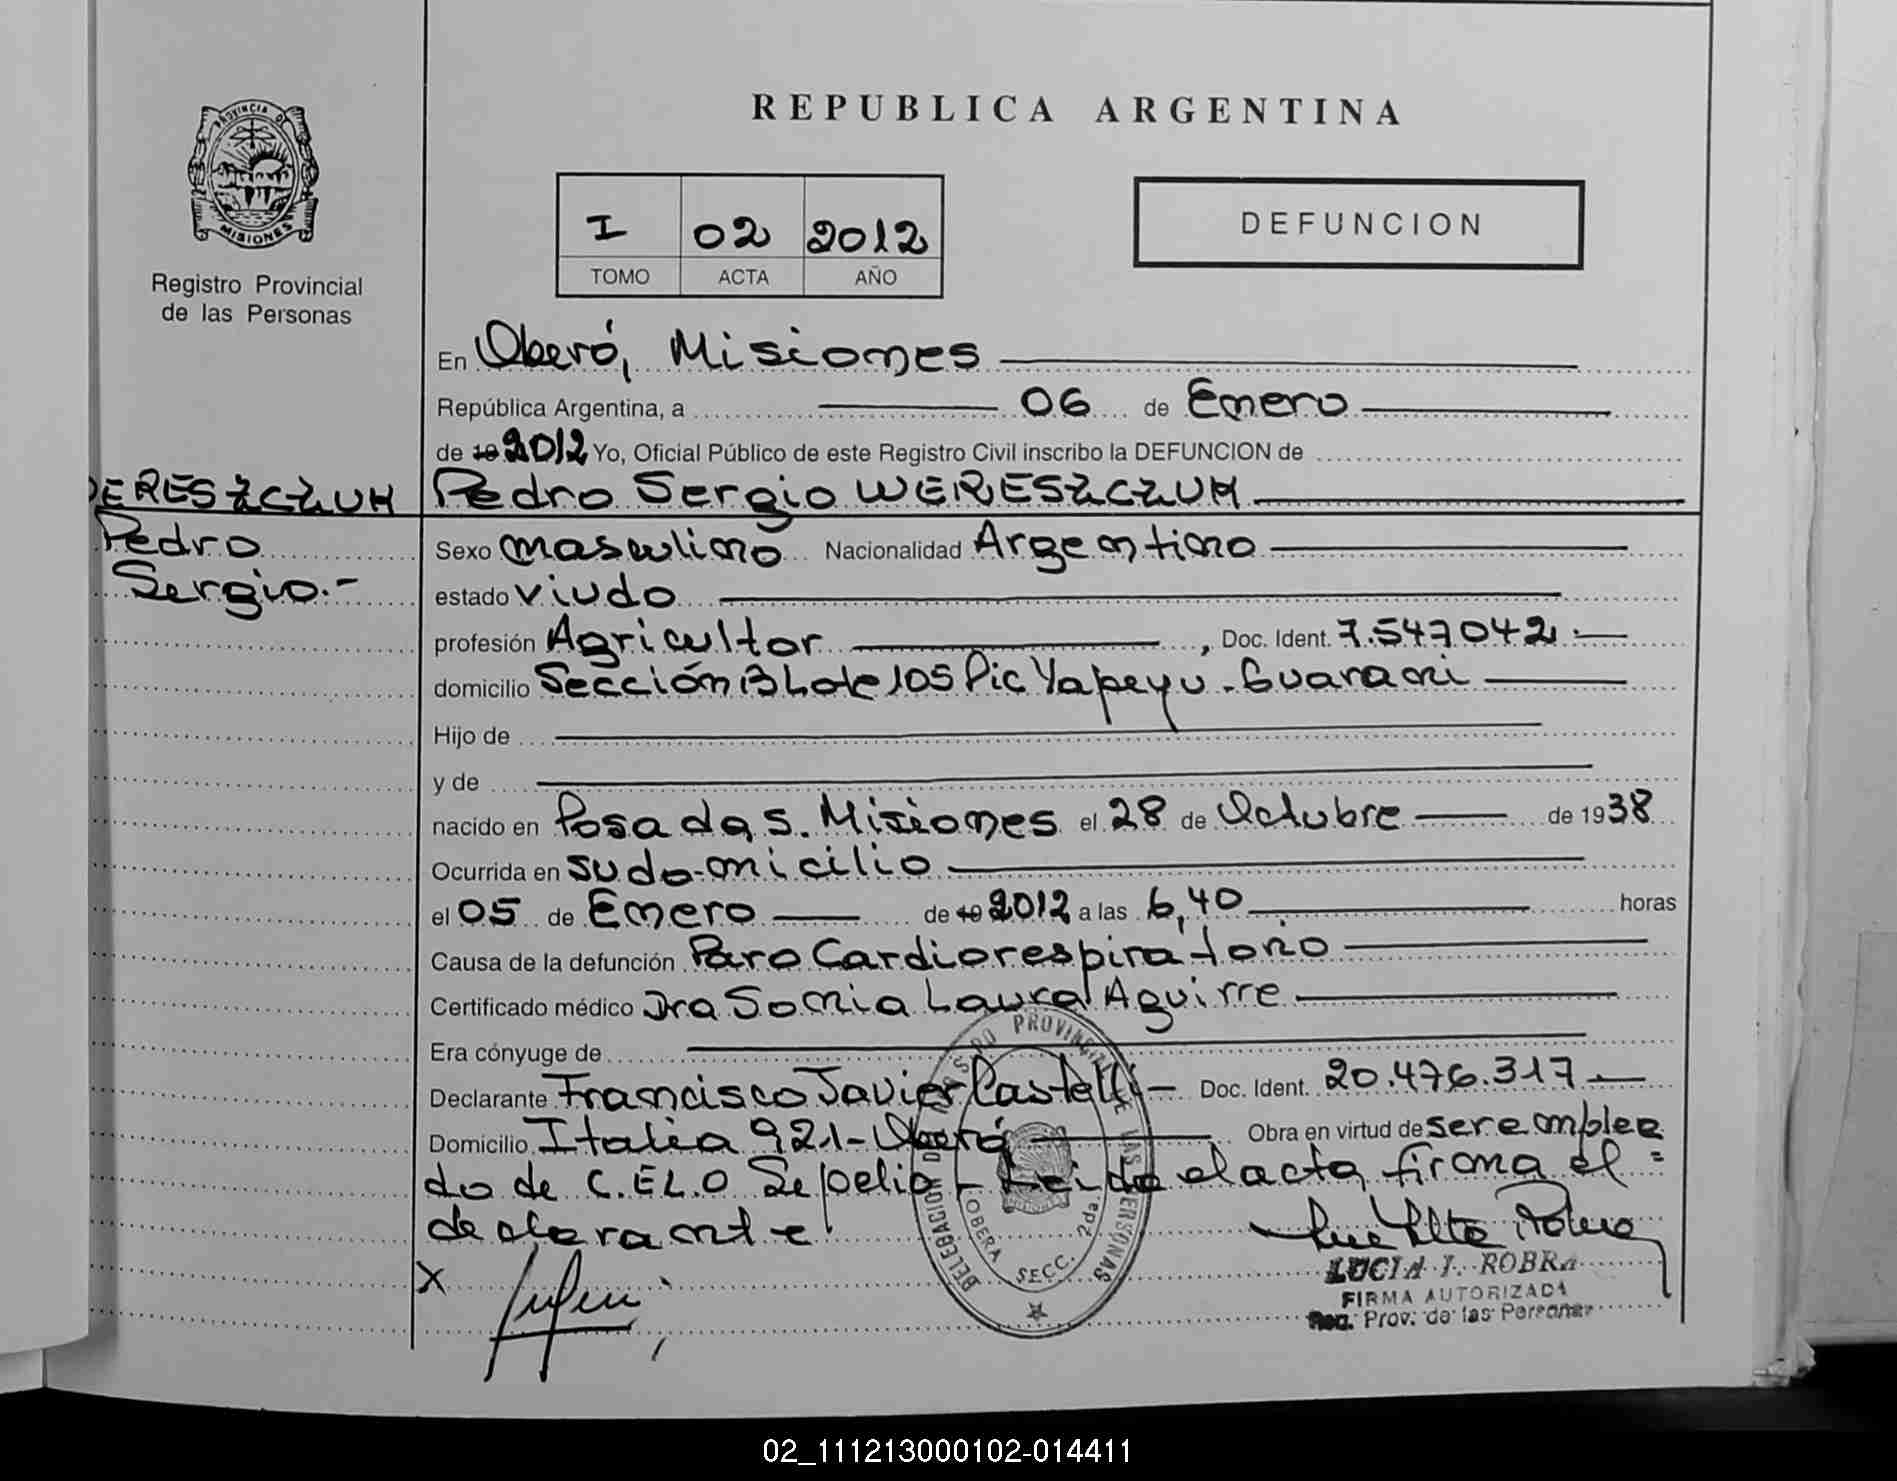 REPUBLICA ARGENTINA
PROVINCIA DE
MISIONES
Registro Provincial
de las Personas
I 02 2012
TOMO ACTA AÑO
DEFUNCION
En Oberó, Misiones
República Argentina, a 06 de Enero
de 19 2012 Yo, Oficial Público de este Registro Civil inscribo la DEFUNCION de
WERESZCZUH Pedro Sergio WERESZCZUH
Pedro
Sergio.-
Sexo masculino Nacionalidad Argentino
estado viudo
profesión Agricultor , Doc. Ident. 7.547042.
domicilio Sección B Lote 105 Pic Yapeyu - Guarani
Hijo de
y de
nacido en Posadas. Misiones el 28 de Octubre de 1938
Ocurrida en su domicilio
el 05 de Enero de 19 2012 a las 6,40 horas
Causa de la defunción Paro Cardiorespiratorio
Certificado médico Dra Sonia Laura Aguirre
Era cónyuge de
Declarante Francisco Javier Castelli - Doc. Ident. 20.476.317
Domicilio Italia 921 - Oberá Obra en virtud de ser emplea
do de C.E.L.O Sepelio - Leida el acta, firma el =
declarante
X
OBERA SECC. 2da
LUCIA I. ROBRA
FIRMA AUTORIZADA
Reg. Prov. de las Personas
02_111213000102-014411